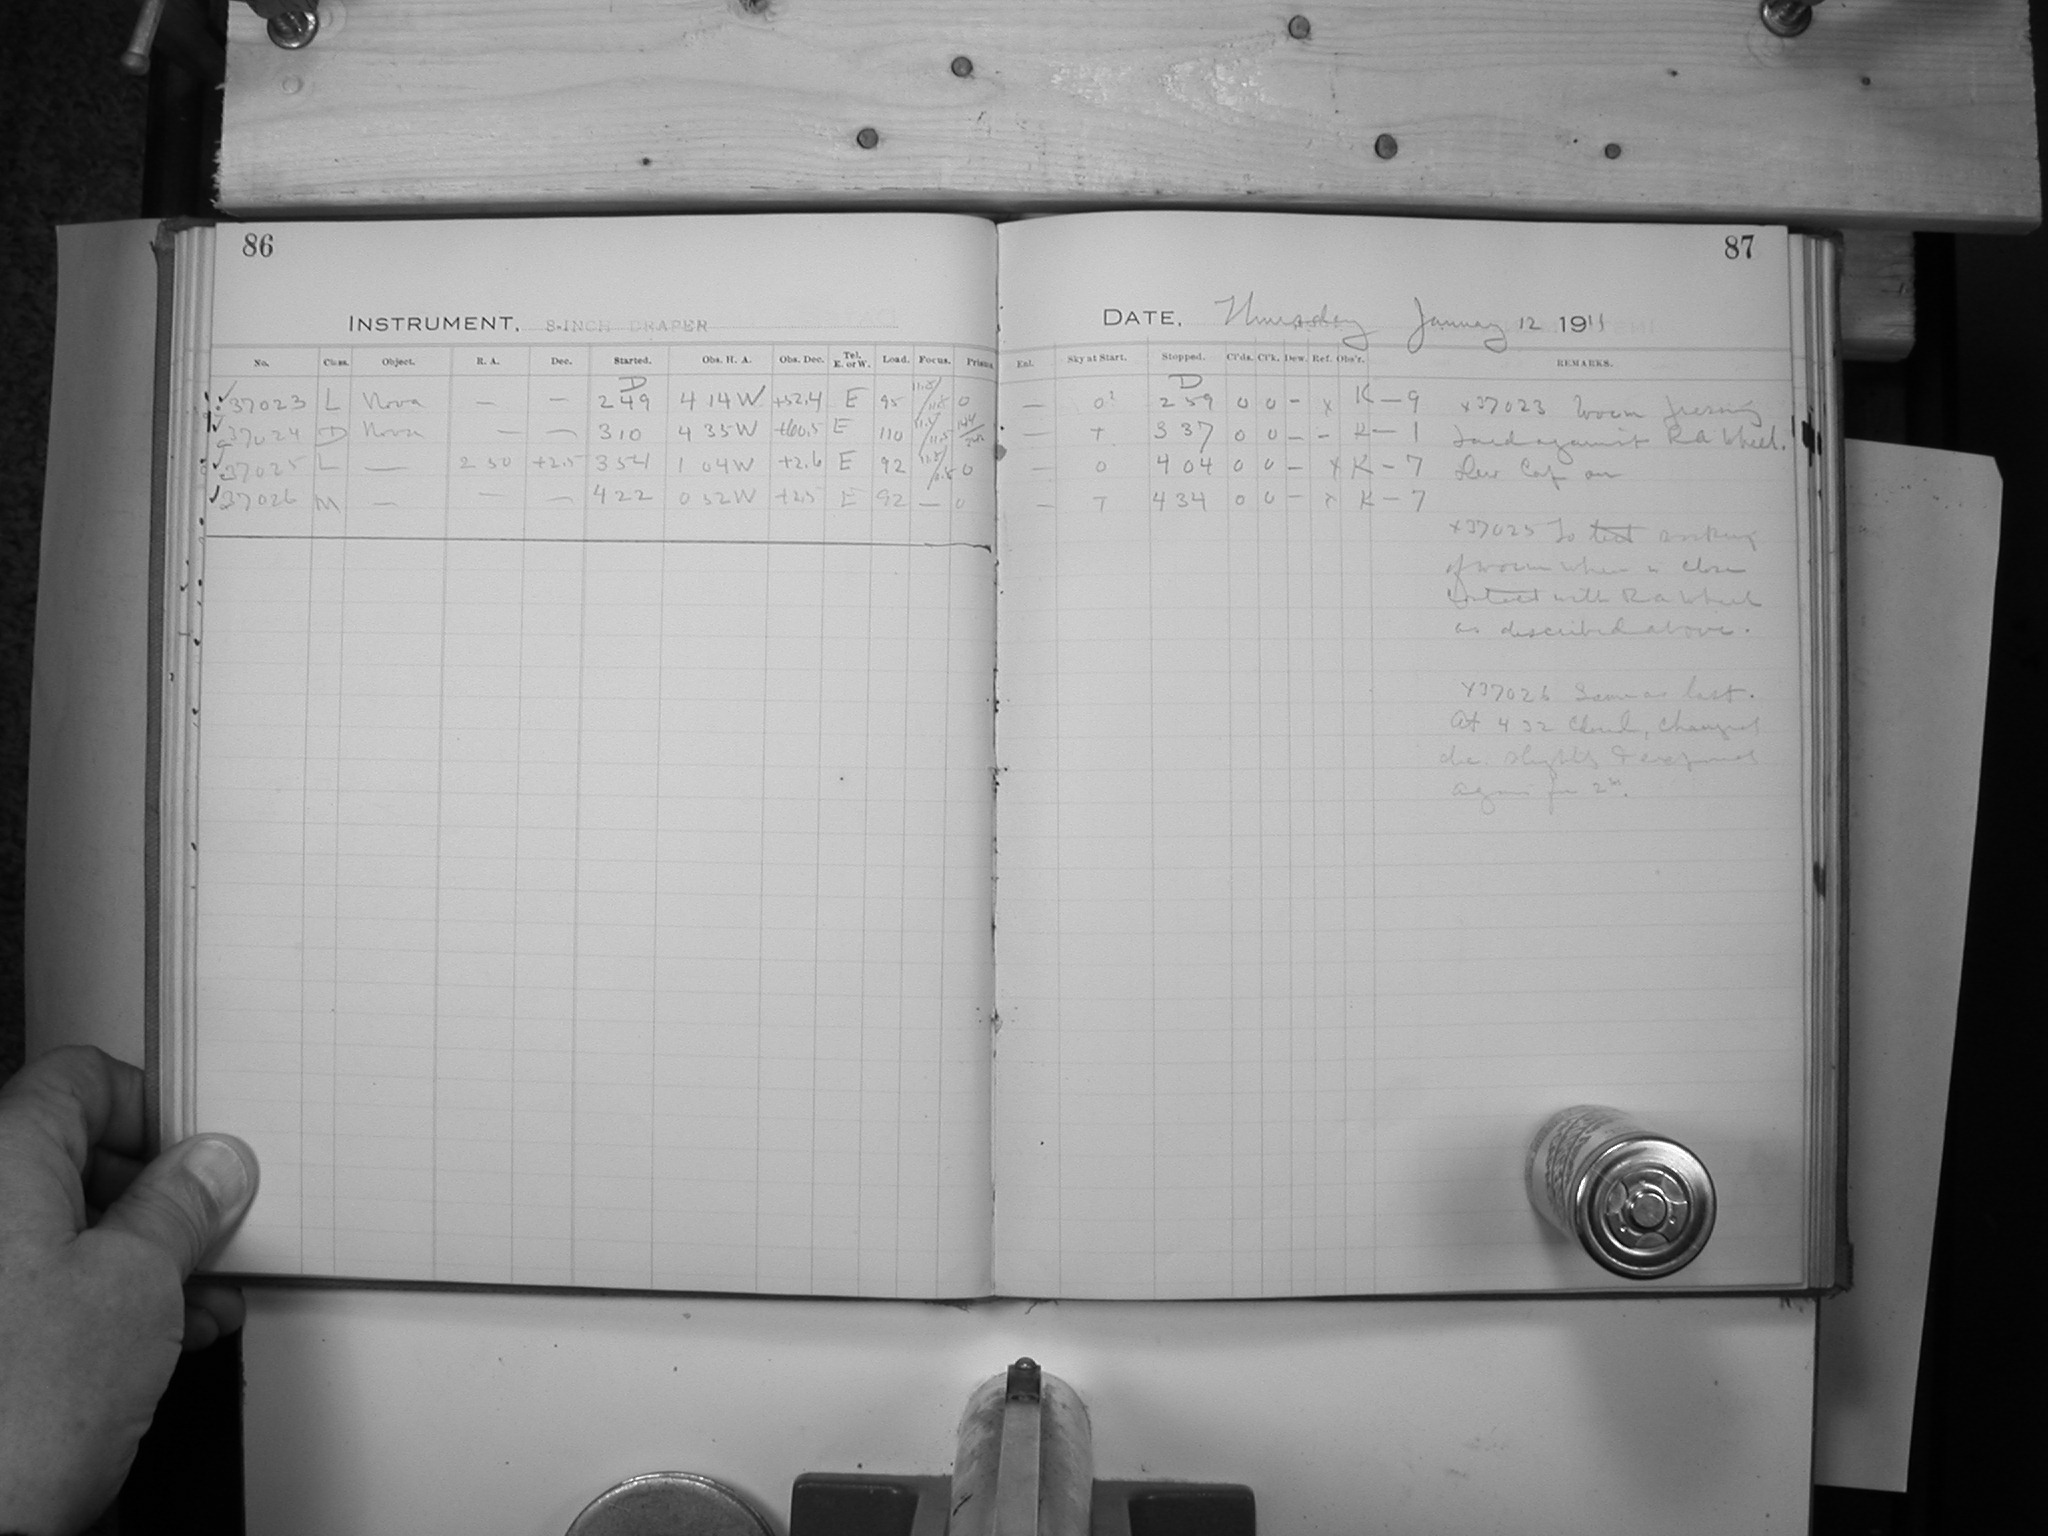 86
87
INSTRUMENT. 8-INCH DRAPER
DATE. Thursday January 12 1911
No. Class. Object. R. A. Dec. Started. Obs. H. A. Obs. Dec. Tel. E. or W. Load. Focus. Prism.
Exl. Sky at Start. Stopped. Cl'ds. Cl'k. Dew. Ref. Obs'r. REMARKS.
D
D
37023 L Nova — — 2 49 4 14 W +52.4 E 95 0
— 0? 2 59 0 0 – x K – 9 x37023 Worm pressing
37024 D Nova — — 3 10 4 35 W +60.5 E 110
— T 3 37 0 0 – – K – 1 hard against R A Wheel.
37025 L — 2 50 +2.5 3 54 1 04 W +2.6 E 92 0
— 0 4 04 0 0 – x K – 7 Dew Cap on
37026 M — — — 4 22 0 52 W +2.5 E 92 — 0
— T 4 34 0 0 – x K – 7
x37025 To test working
of worm when in close
contact with R A Wheel
as described above.
x37026 Same as last.
At 4 32 Cloud, changed
dec. slightly & exposed
again for 2m.